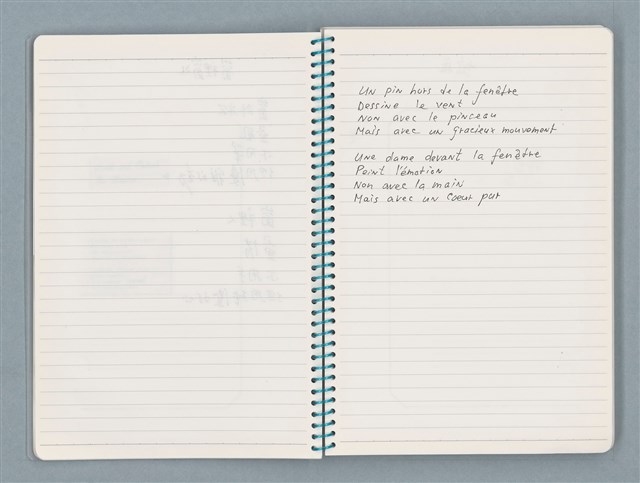 Un pin hors de la fenêtre
Dessine le vent
Non avec le pinceau
Mais avec un gracieux mouvement
Une dame devant la fenêtre
Peint l'émotion
Non avec la main
Mais avec un coeur pur